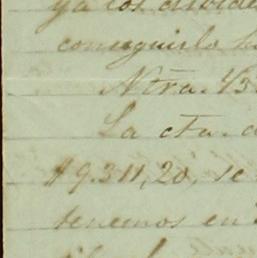 ya los divide
conseguirlo h
Ntra. 43
La cta. d
$9.311,20, se
tenemos en